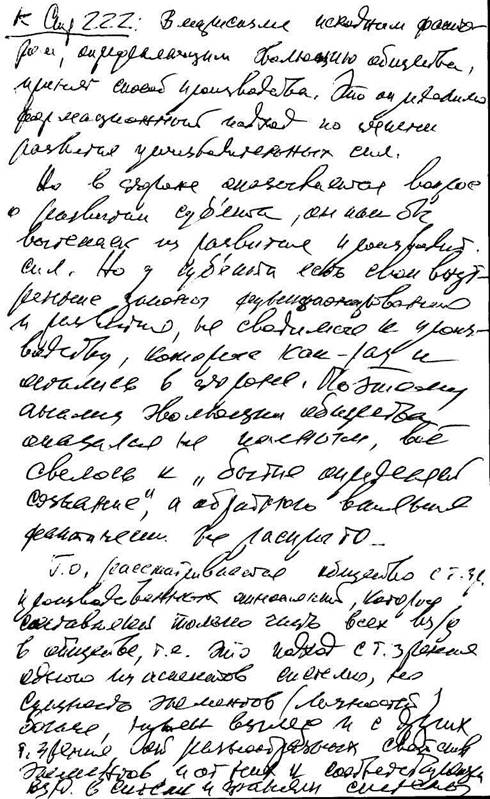 К Стр 222: В марксизме исходным факто-
ром, определяющим эволюцию общества,
принят способ производства. Это определило
формационный подход по степени
развития производительных сил.
Но в стороне оказывается вопрос
о развитии субъекта, он как бы
вытекает из развития производит.
сил. Но у субъекта есть свои внут-
ренние законы функционирования
и развития, не сводимые к произ-
водству, которые как-раз и
остались в стороне. Поэтому
анализ эволюции общества
оказался не полным, всё
свелось к „бытие определяет
сознание", а обратного влияния
фактически не раскрыто_
Т.о. рассматривается общество с т.зр.
производственных отношений, которые
составляют только часть всех вз/д
в обществе, т.е. это подход с т. зрения
одного из аспектов системы, но
сущность элементов (личностей)
богаче, нужен взгляд и с других
т. зрения от разнообразных свойств
элементов и от них к соответствующим
вз/д. в системе и граням системы